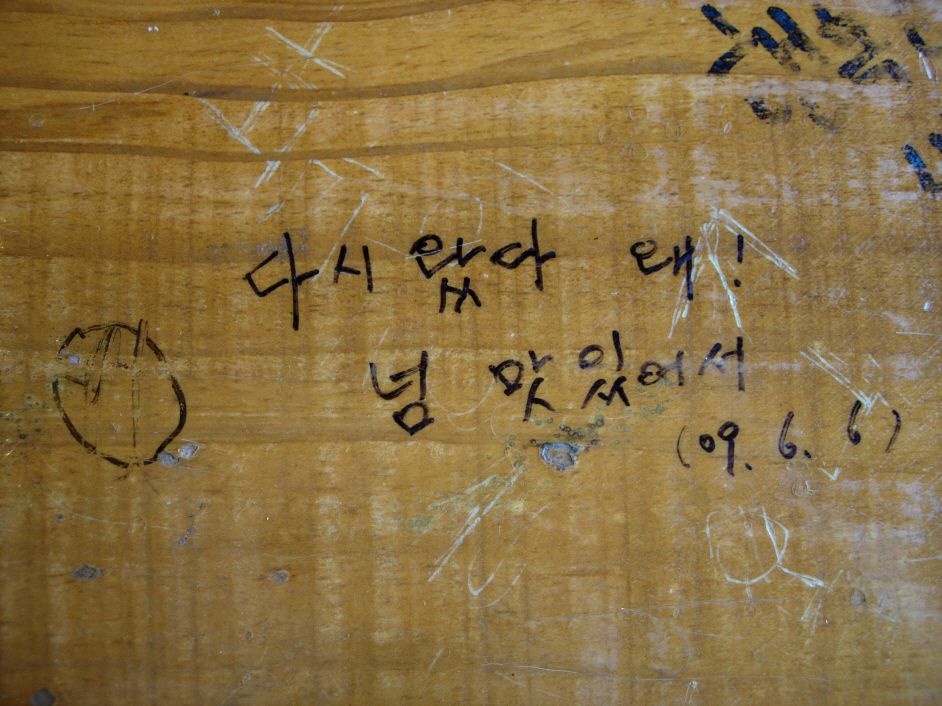 다시 왔다 왜!
넘 맛있어서
(09. 6. 6)